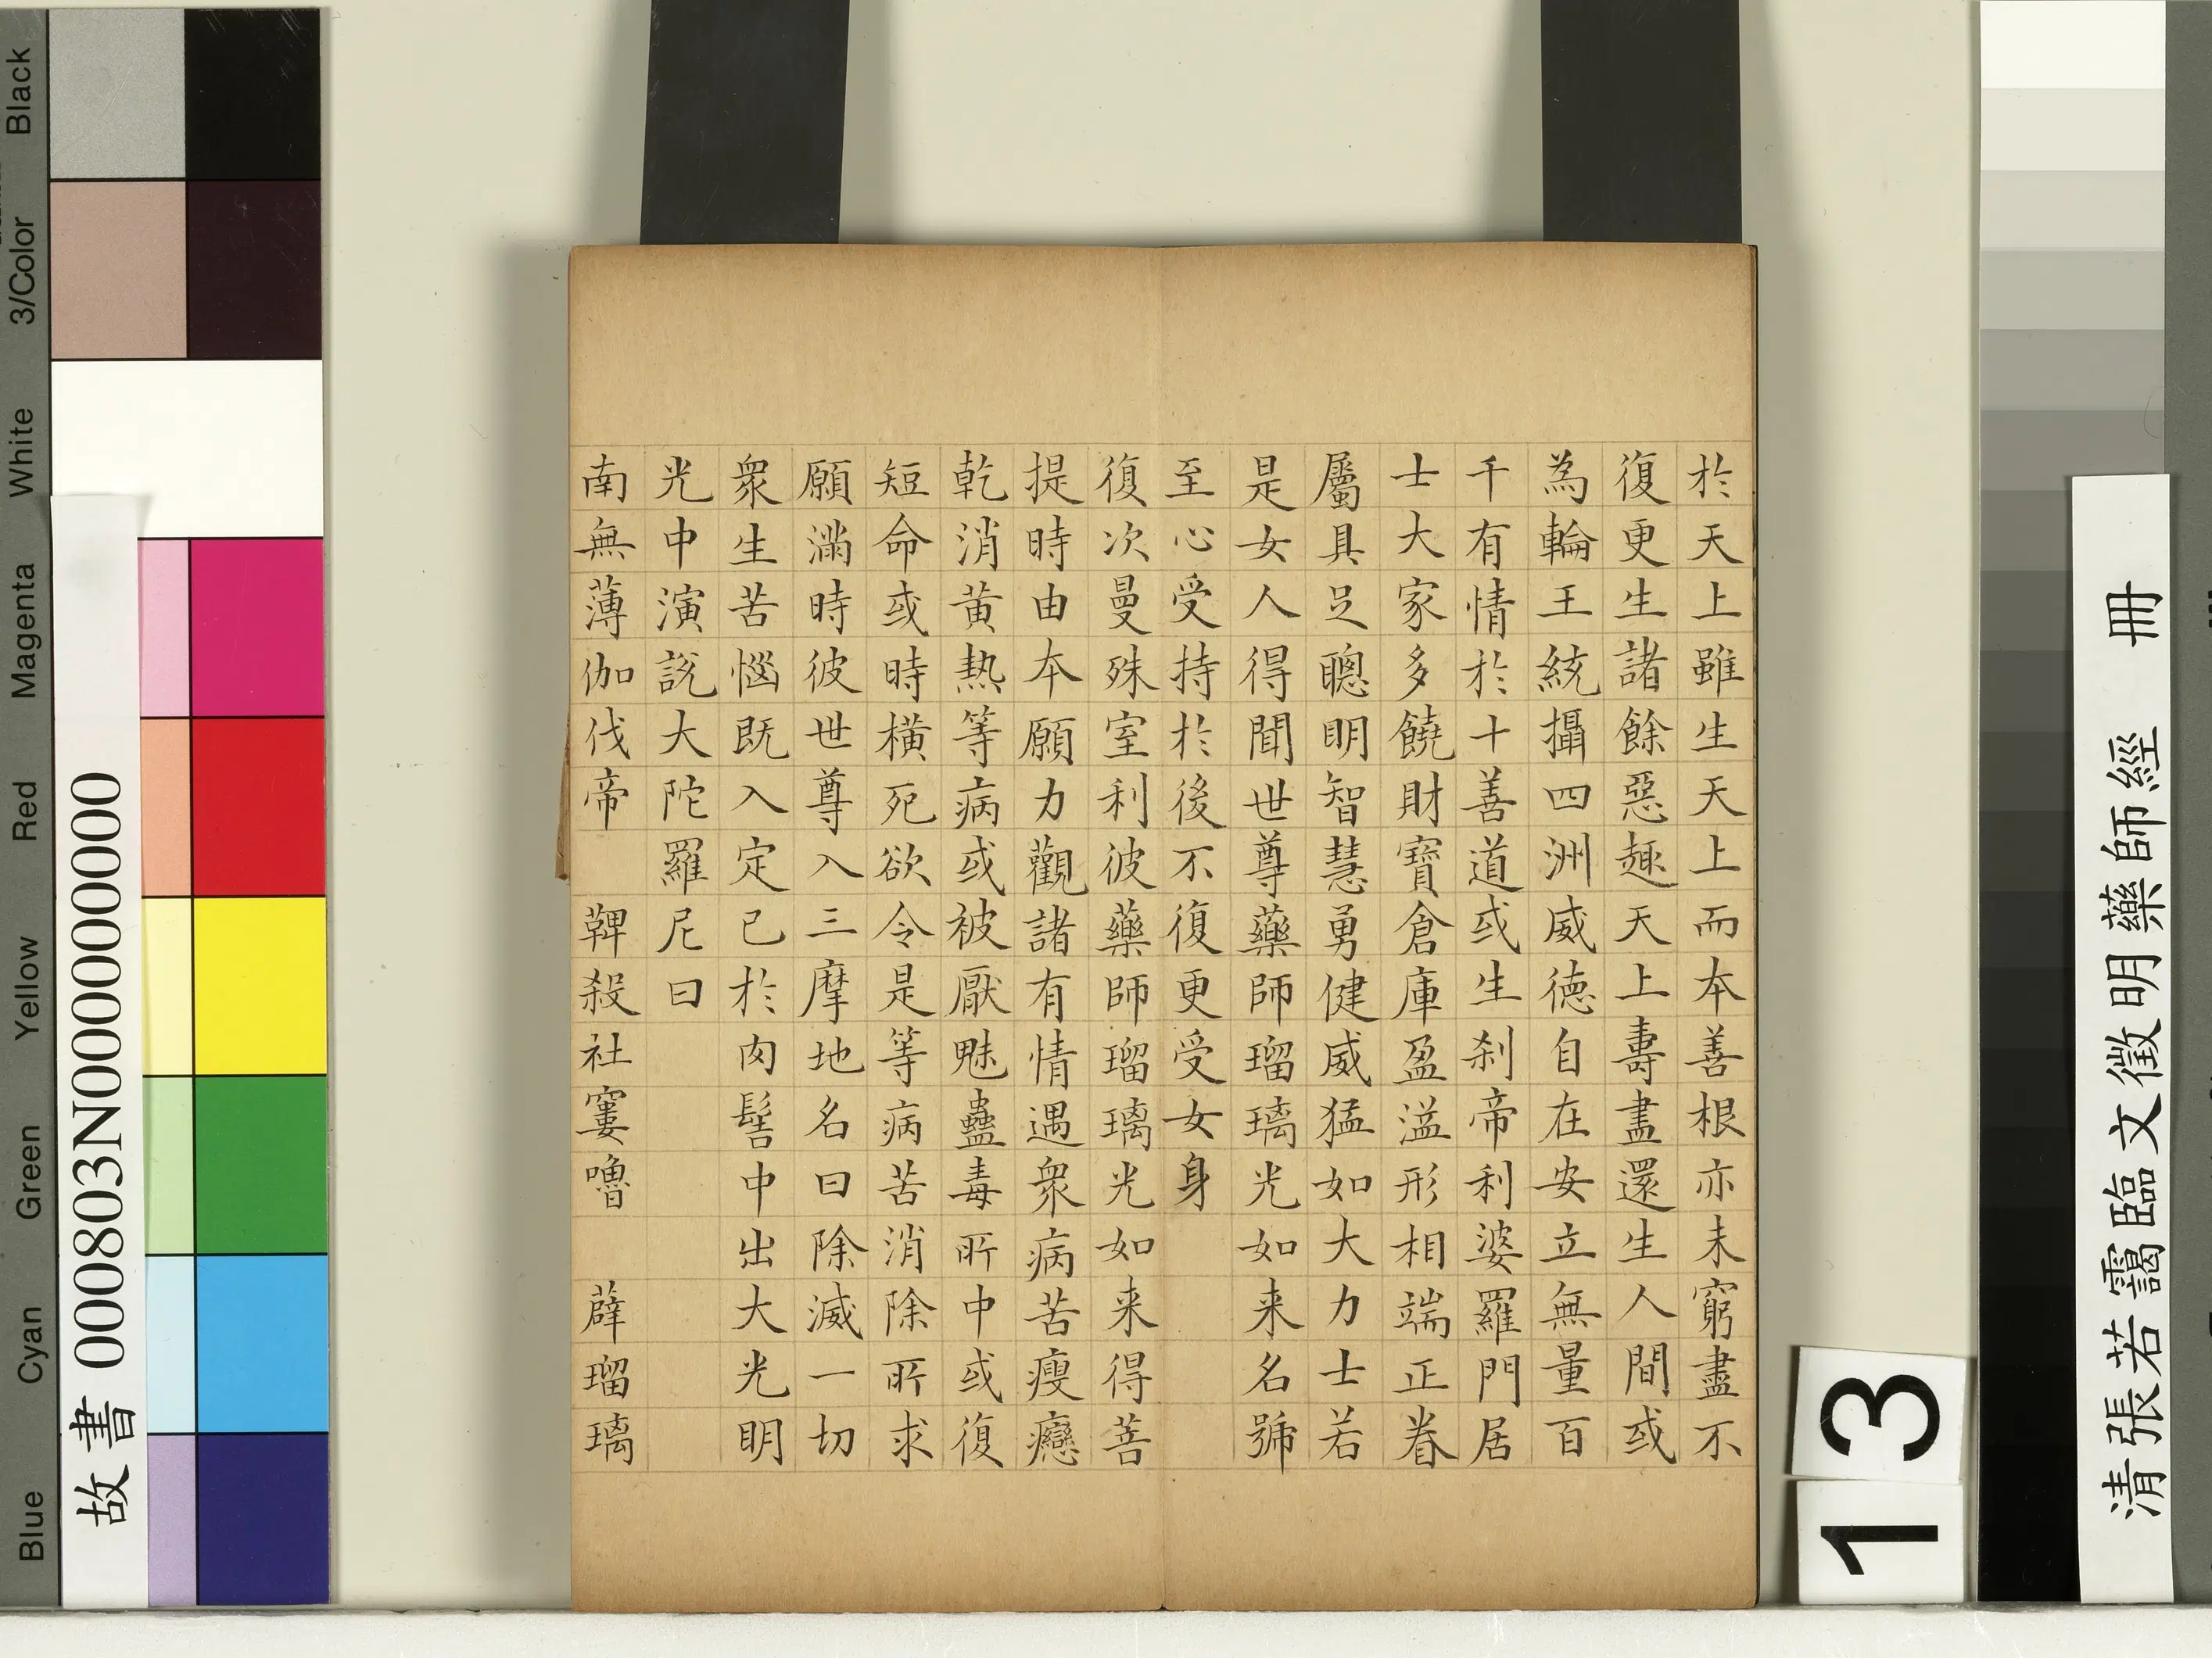 於天上雖生天上而本善根亦未窮盡不
復更生諸餘惡趣天上壽盡還生人間或
為輪王統攝四洲威德自在安立無量百
千有情於十善道或生刹帝利婆羅門居
士大家多饒財寶倉庫盈溢形相端正眷
屬具足聰明智慧勇健威猛如大力士若
是女人得聞世尊藥師瑠璃光如来名號
至心受持於後不復更受女身
復次曼殊室利彼藥師瑠璃光如来得菩
提時由本願力觀諸有情遇衆病苦瘦癋
乾消黃熱等病或被厭魅蠱毒所中或復
短命或時橫死欲令是等病苦消除所求
願滿時彼世尊入三摩地名曰除滅一切
衆生苦惱既入定已於肉髻中出大光明
光中演說大陀羅尼曰
南無薄伽伐帝 鞞殺社窶嚕 薜瑠璃
清張若靄臨文徵明藥師經 冊
故書 000803N000000000
13
Black
3/Color
White
Magenta
Red
Yellow
Green
Cyan
Blue